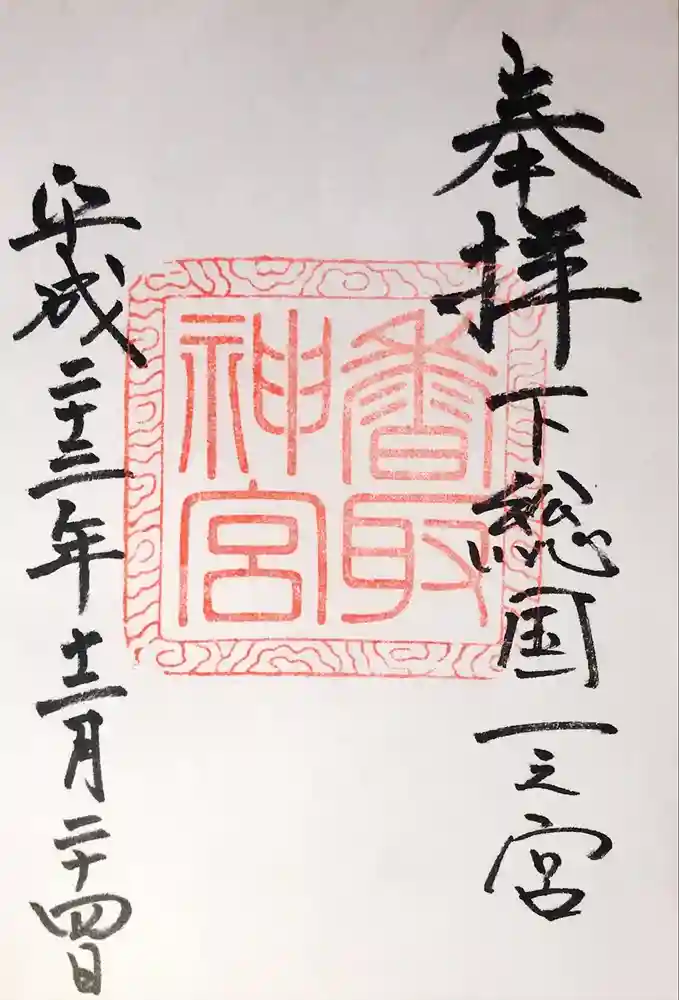 奉拝 下総国一之宮
香取
神宮
平成二十三年十二月二十四日